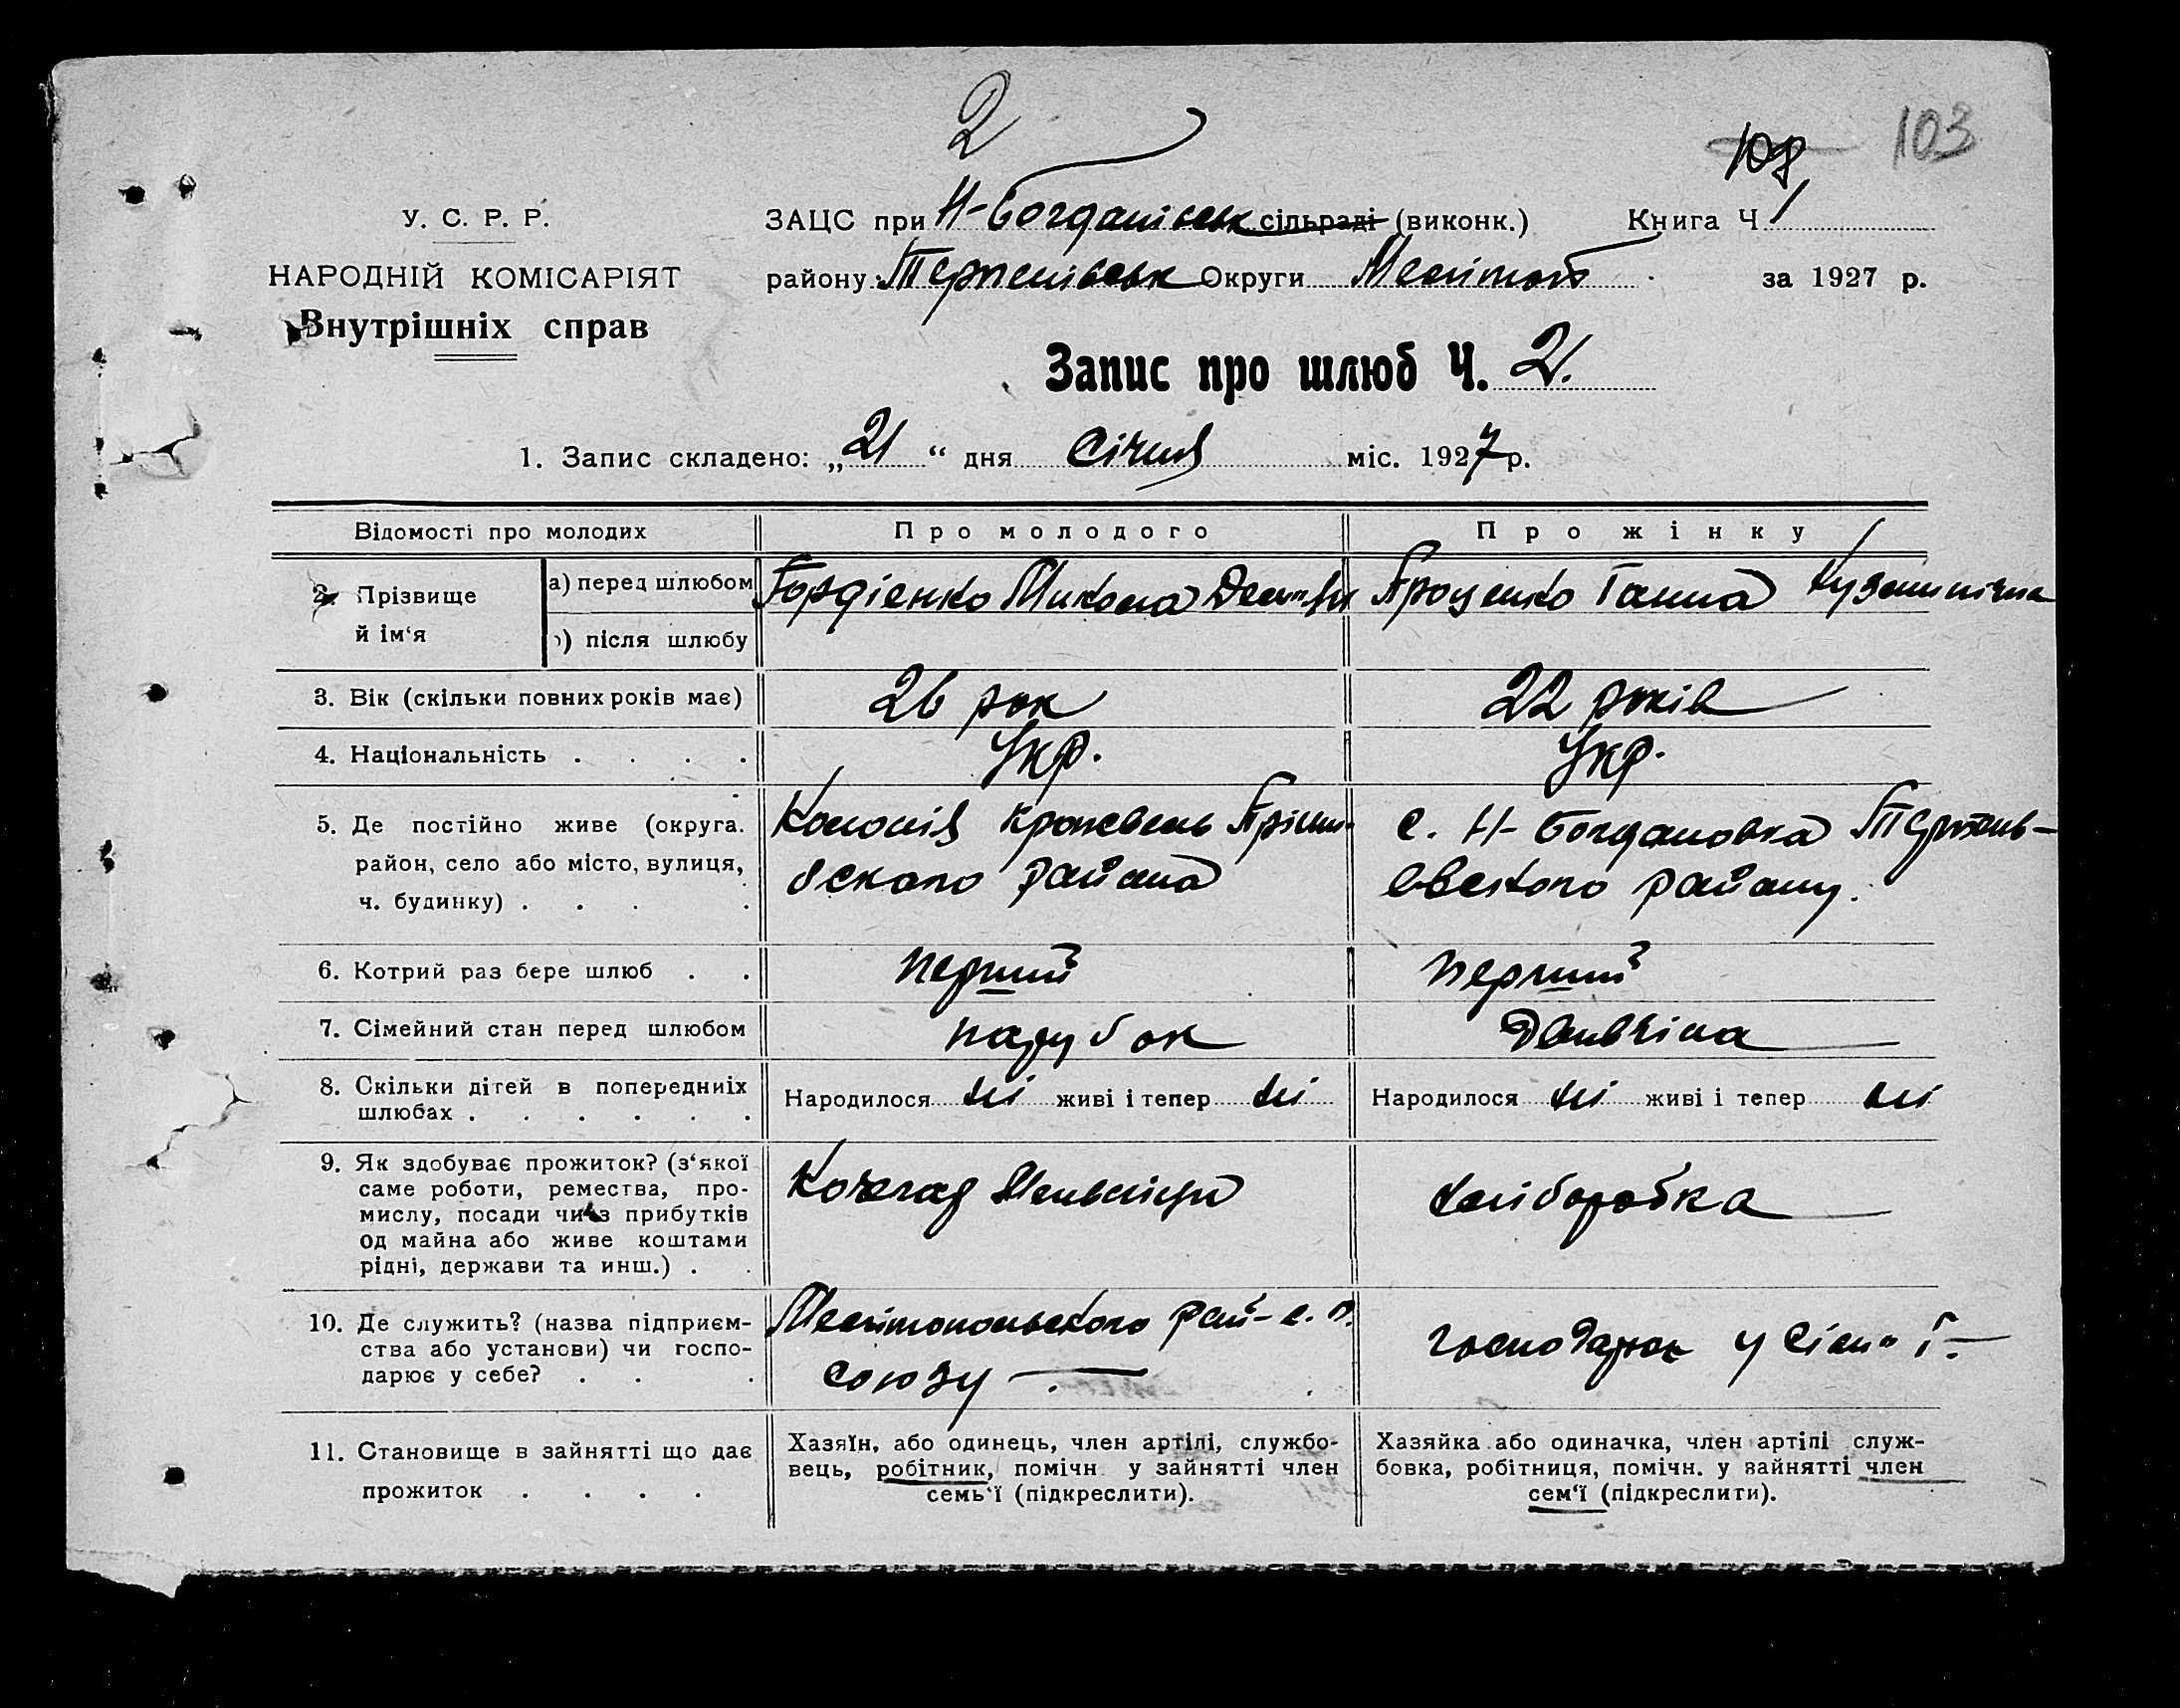 2
108 103
У. С. Р. Р.
НАРОДНІЙ КОМІСАРІЯТ
Внутрішніх справ
ЗАЦС при Н-Богданівськ сільраді (виконк.) Книга Ч 1
району Терпенівськ Округи Меліт за 1927 р.
Запис про шлюб Ч. 2.
1. Запис складено: „21“ дня Січня міс. 1927 р.
Відомості про молодих Про молодого Про жінку
2. Прізвище й ім‘я
а) перед шлюбом Гордіенко Микола Проценко Ганна Кузьминічна
б) після шлюбу
3. Вік (скільки повних років має) 26 рок 22 років
4. Національність . . . . Укр. Укр.
5. Де постійно живе (округа. Колонія Пріши- с. Н-Богдановка Терпень-
район, село або місто, вулиця, бскаго района евского району.
ч. будинку) . . . .
6. Котрий раз бере шлюб . . перший перший
7. Сімейний стан перед шлюбом парубок Дивчіна
8. Скільки дітей в попередниіх Народилося ні живі і тепер ні Народилося ні живі і тепер ні
шлюбах . . . . . .
9. Як здобуває прожиток? (з‘якої
саме роботи, ремества, про- Кочегар Мельниці хліборобка
мислу, посади чи з прибутків
од майна або живе коштами
рідні, держави та инш.) . .
10. Де служить? (назва підприєм- Мелітопольского рай-с. п.
ства або установи) чи госпо- союзу господарює у
дарює у себе? . . .
11. Становище в зайнятті що дає
прожиток . . . .
Хазяїн, або одинець, член артілі, службо-
вець, робітник, помічн у зайнятті член
семь‘ї (підкреслити).
Хазяйка або одиначка, член артілі служ-
бовка, робітниця, помічн. у зайнятті член
сем‘ї (підкреслити).